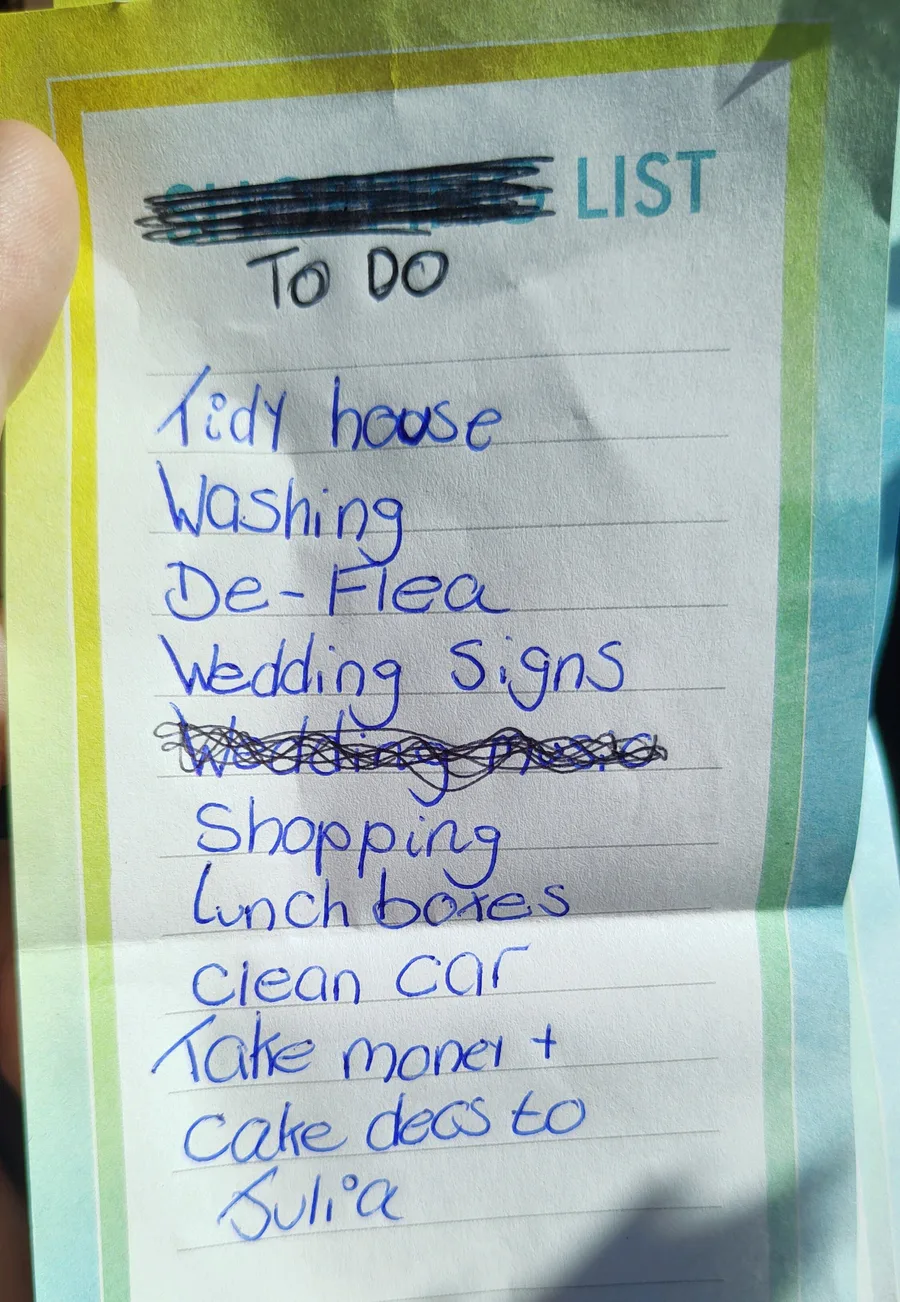 SHOPPING LIST
TO DO
Tidy house
Washing
De-Flea
Wedding Signs
Wedding Music
Shopping
Lunch boxes
clean car
Take money +
Cake decs to
Julia